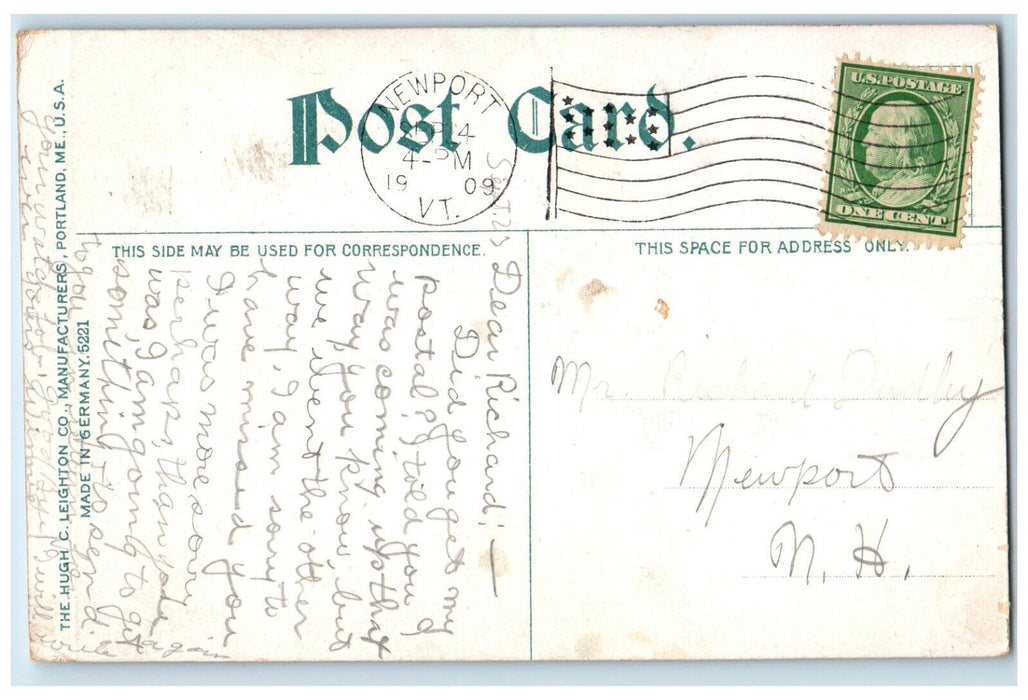 Post Card.
NEWPORT
4-PM
1909
VT.
U.S. POSTAGE
ONE CENT
THIS SIDE MAY BE USED FOR CORRESPONDENCE.
THIS SPACE FOR ADDRESS ONLY.
THE HUGH C. LEIGHTON CO., MANUFACTURERS, PORTLAND, ME., U.S.A.
MADE IN GERMANY. 5221
Sept. 23
Dear Richard! —
Did you get my
postal? I told you I
was coming up that
way you know, but
we went the other
way. I am sorry to
have missed you
I was more sorry
perhaps, than you
was, I am going to get
something to send
to you
will write
again
Mr. Richard Dudley
Newport
N. H.